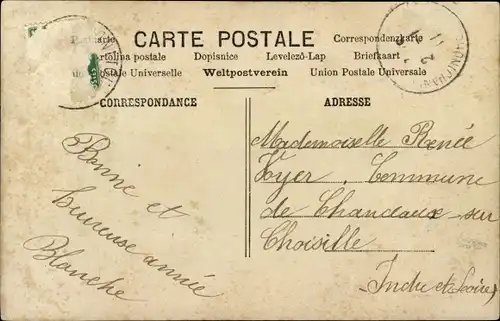 CARTE POSTALE
Postkarte
Correspondenzkarte
Cartolina postale Dopisnice Levelező-Lap Briefkaart
Postale Universelle Weltpostverein Union Postale Universale
CORRESPONDANCE
ADRESSE
Bonne et
heureuse année
Blanche
Mademoiselle Renée
Voyer, Commune
de Chanceaux-sur
Choisille
Indre et Loire